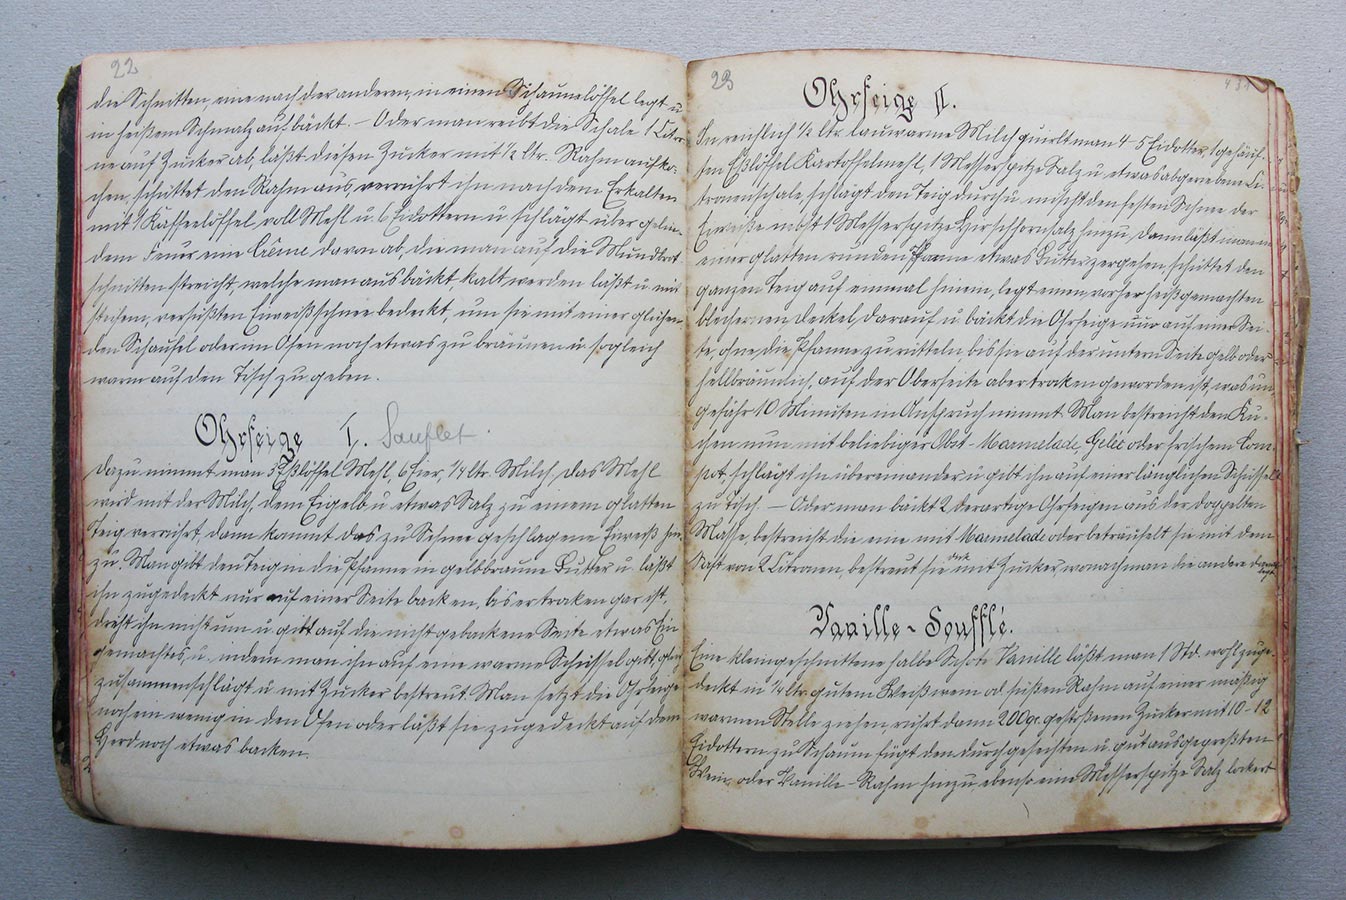 22
die Schnitten, eine nach der anderen, in einen Schaumlöffel legt u.
in heißem Schmalz ausbäckt. – Oder man reibt die Schale 1 Citro-
ne auf Zucker ab, läßt diesen Zucker mit ½ ltr. Rahm aufko-
chen, schüttet den Rahm aus verrührt ihn nach dem Erkalten
mit 1 Kaffeelöffel voll Mehl u. 6 Eidottern u. schlägt über gelin-
dem Feuer eine Crême davon ab, die man auf die Mundbrot-
schnitten streicht, welche man ausbäckt kalt werden läßt u. mit
steifem, versüßten Eiweißschnee bedeckt, um sie mit einer glühen-
den Schaufel oder im Ofen noch etwas zu bräunen u. sogleich
warm auf den Tisch zu geben.
Ohrfeige I. Souflet.
Dazu nimmt man 3 Eßlöffel Mehl, 6 Eier, ¼ ltr. Milch, das Mehl
wird mit der Milch dem Eigelb u. etwas Salz zu einem glatten
Teig verrührt dann kommt das zu Schnee geschlagene Eiweiß hin-
zu. Man gibt den Teig in die Pfanne in gelbbraune Butter u. läßt
ihn zugedeckt nur auf einer Seite backen, bis er traken gar ist,
dreht ihn nicht um u. gibt auf die nicht gebackene Seite etwas Ein-
gemachtes u. indem man ihn auf eine warme Schüssel gibt, gleich
zusammenschlägt u. mit Zucker bestreut. Man setzt die Ohrfeige
noch ein wenig in den Ofen oder läßt sie zugedeckt auf dem
Herd noch etwas backen.
23
Ohrfeige II.
In reichlich ½ ltr. lauwarme Milch quirlt man 4-5 Eidotter, 1 gehäuf-
ten Eßlöffel Kartoffelmehl, 1 Messerspitze Salz u. etwas abgeriebene Ci-
tronenschale, schlägt den Teig durch u. mischt den festen Schnee der
Eiweiße nebst 1 Messerspitze Hirschhornsalz hinzu. Dann läßt man in
einer glatten runden Pfanne etwas Butter zergehen schüttet den
ganzen Teig auf einmal hinein, legt einen vorher heißgemachten
blechernen Deckel darauf u. bäckt die Ohrfeige nur auf einer Sei-
te ohne die Pfanne zu rütteln, bis sie auf der untern Seite gelb oder
hellbräunlich, auf der Oberseite aber traken geworden ist, was un-
gefähr 10 Minuten in Anspruch nimmt. Man bestreicht den Ku-
chen nun mit beliebiger Obst-Marmelade, Gelée oder frischem Com-
pot, schlägt ihn übereinander u. gibt ihn auf einer länglichen Schüssel
zu Tisch. – Oder man bäckt 2 derartige Ohrfeigen aus der doppelten
Masse, bestreicht die eine mit Marmelade oder beträufelt sie mit dem
Saft von 2 Citronen, bestreut sie dick mit Zucker, wonach man die andere darauf
legt.
Vanille-Soufflé.
Eine kleingeschnittene halbe Schote Vanille läßt man 1 Std. wohl zuge-
deckt in ¼ ltr. gutem Weißwein od. süßen Rahm auf einer mäßig
warmen Stelle ziehen, rührt dann 200gr. gestoßenen Zucker mit 10-12
Eidottern zu Schaum fügt den durchgeseihten u. gut ausgepreßten
Wein, oder Vanille-Rahm hinzu ebenso eine Messerspitze Salz lockert